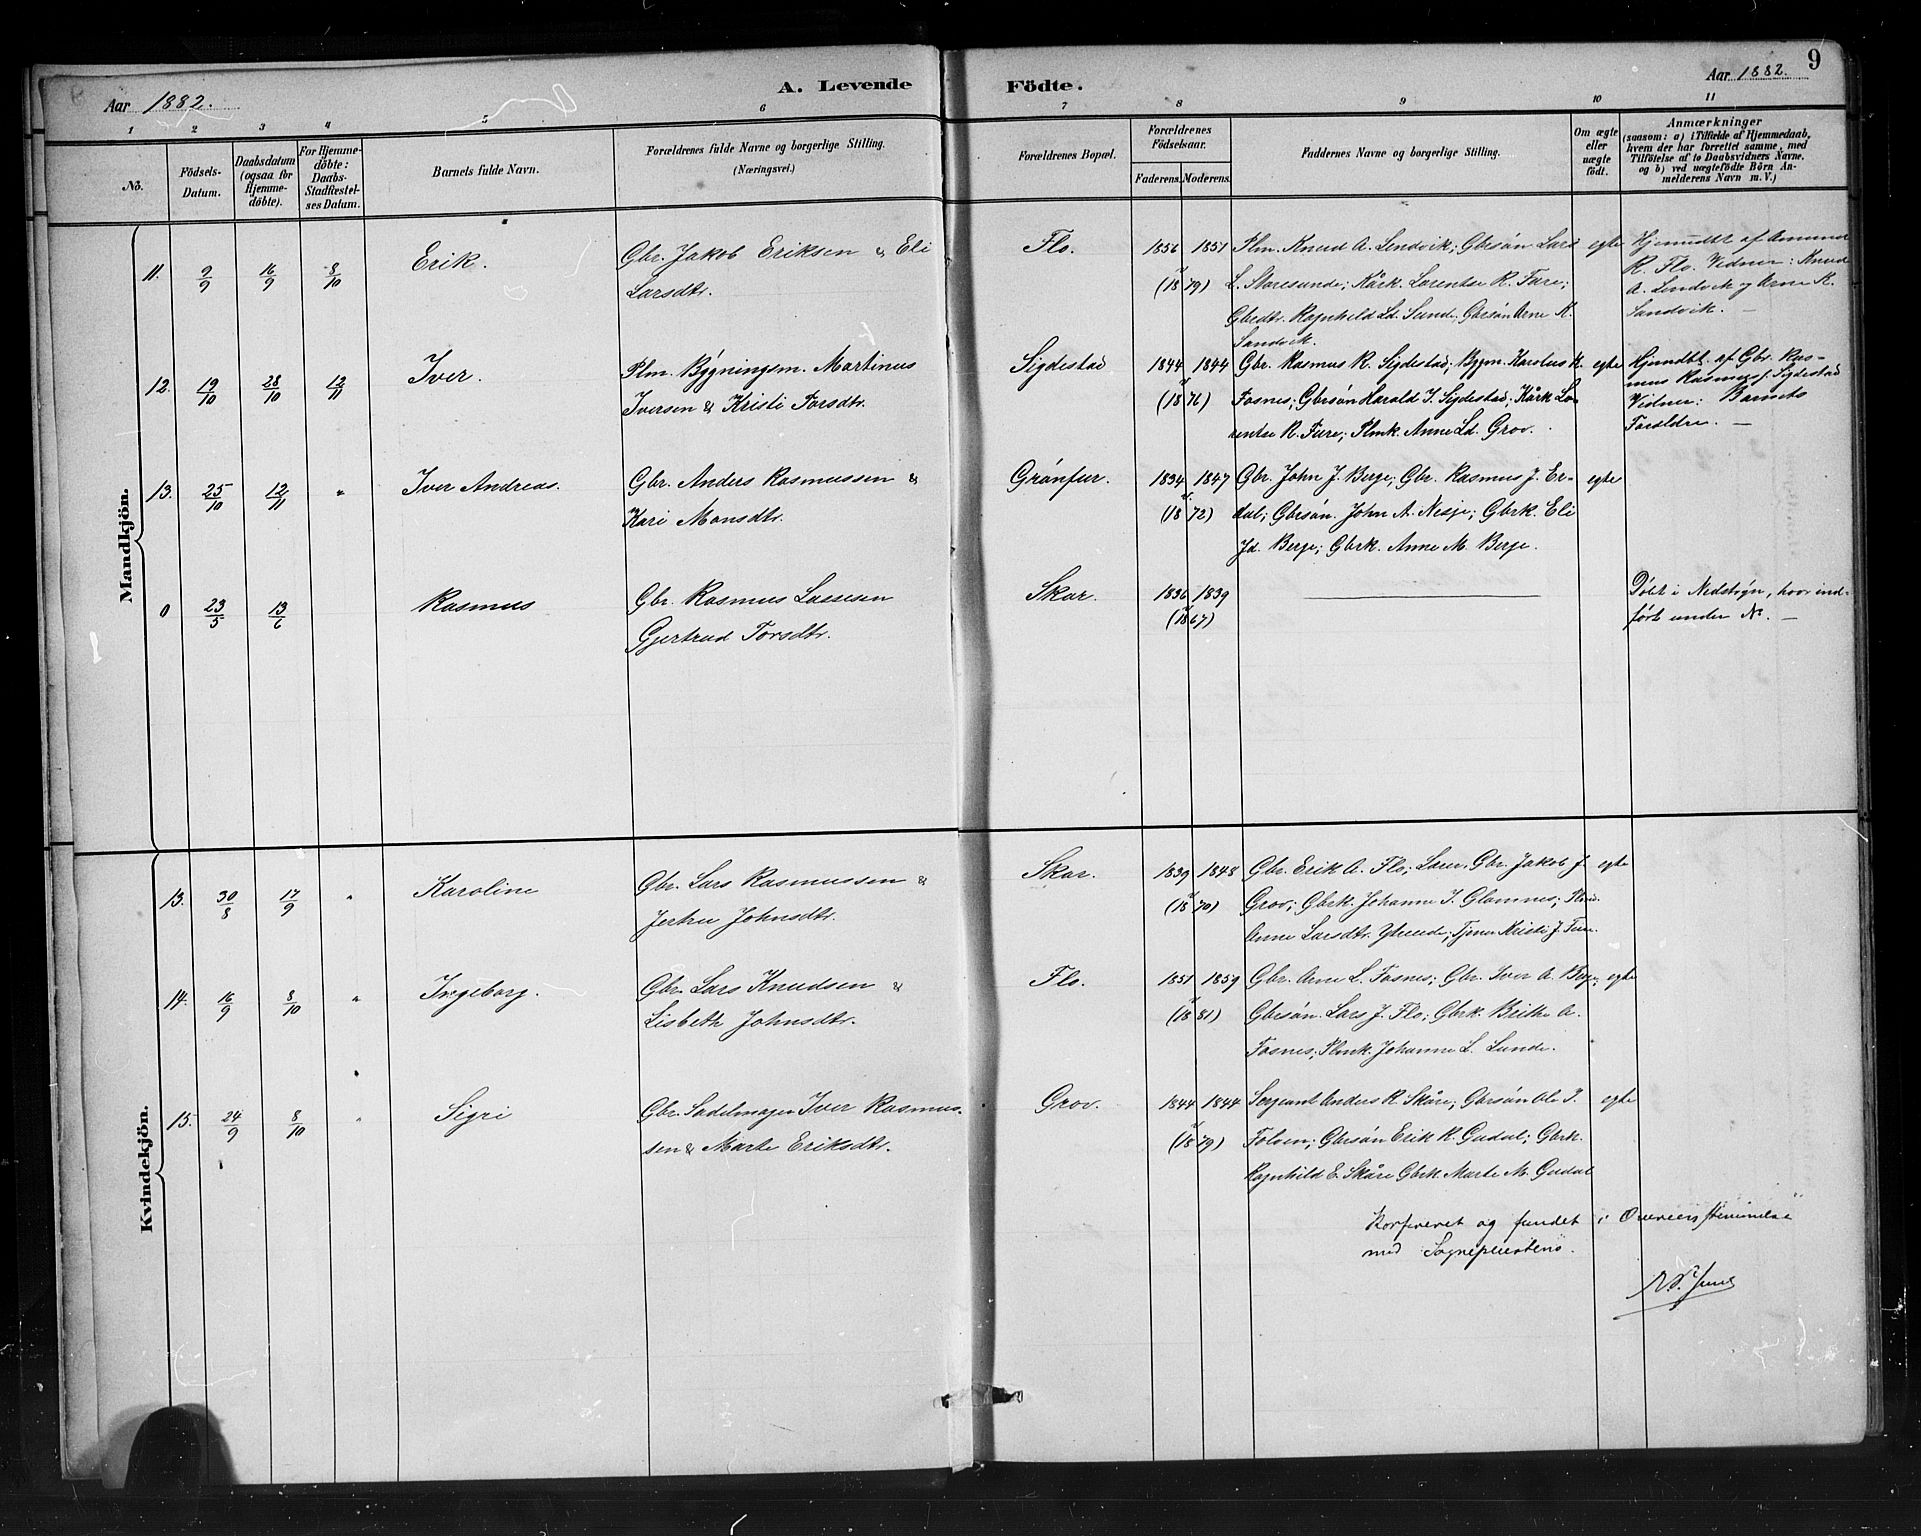 9
Aar 1882. A. Levende Födte. Aar 1882.
1 2 3 4 5 6 7 8 9 10 11
No. Födsels-Datum. Daabsdatum (ogsaa for Hjemmedöbte). For Hjemmedöbte: Daabs-Stadfæstelses Datum. Barnets fulde Navn. Forældrenes fulde Navne og borgerlige Stilling. (Næringsvei.) Forældrenes Bopæl. Forældrenes Födselsaar. Faderens. Moderens. Faddernes Navne og borgerlige Stilling. Om ægte eller uægte födt. Anmærkninger (saasom: a) i Tilfælde af Hjemmedaab, hvem der har forrettet samme, med Tilföielse af to Daabsvidners Navne, og b) ved uægtefödte Börn Anmelderens Navn m. V.)
Mandkjön.
11. 9/9 16/9 8/10 Erik. Gbr. Jakob Eriksen & Eli Flo. 1856 1851 Plm. Knud A. Lendvik; Gbrsøn Lars egte Hjemmdbt af Amund
Larsdtr. (18 79) L. Storesunde; Kårk. Larentse R. Fure; R. Flo. Vidner: Knud
Gbrdtr. Ragnhild Ld. Sunde, Gbrsøn Arne K. A. Lendvik og Arne K.
Sandvik. Sandvik. —
12. 19/10 28/10 12/11 Iver. Plm. Bygningsm. Martinus Sigdestad 1844 1844 Gbr. Rasmus R. Sigdestad; Bygm. Karolus K. egte Hjemdbt. af Gbr. Ras-
Iversen & Kristi Torsdtr. (18 76) Fosnes; Gbrsøn Harald I. Sigdestad; Kårk La- mus Rasmuss. Sigdestad
rentse R. Fure; Plmk. Anne Ld. Grov. Vidner: Barnets
Forældre. —
13. 25/10 12/11 " Iver Andreas. Gbr. Anders Rasmussen & Grønfur. 1834 1847 Gbr. John J. Berge; Gbr. Rasmus J. Er- egte
Kari Monsdtr. (18 72) dal; Gbrsøn. John A. Nesje; Gbrk. Eli
Jd. Berge; Gbrk. Anne M. Berge.
0 23/5 13/6 Rasmus Gbr. Rasmus Lassesen Skar. 1836 1839 Døbt i Nedstryn, hvor ind-
Gjertrud Torsdtr. (18 67) ført under No. —
Kvindekjön.
13. 30/8 17/9 " Karoline Gbr. Lars Rasmussen & Skar. 1839 1848 Gbr. Erik A. Flo; Gbr. Jakob J. egte
Jertru Johnsdtr. (18 70) Grov; Gbrk. Johanne I. Glomnes;
Anne Larsdtr. Tjener Kristi J.
14. 16/9 8/10 " Ingeborg. Gbr. Lars Knudsen & Flo. 1851 1859 Gbr. Arne L. Fosnes; Gbr. Iver A. Berge; egte
Lisbeth Johnsdtr. (18 81) Gbrsøn. Lars J. Flo; Gbrk. Brithe A.
Fosnes; Plmk. Johanne L. Sunde.
15. 24/9 8/10 " Sigri Gbr. Sadelmager Iver Rasmus- Grov. 1844 1844 Sergeant Anders R. Skåre; Gbrsøn Ole I. egte
sen & Marte Eriksdtr. (18 79) Folven; Gbrsøn Erik R. Gudal; Gbrk.
Ragnhild E. Skåre Gbrk. Marte M. Gudal
Konfereret og fundet i Overensstemmelse
med Sogneprestens.